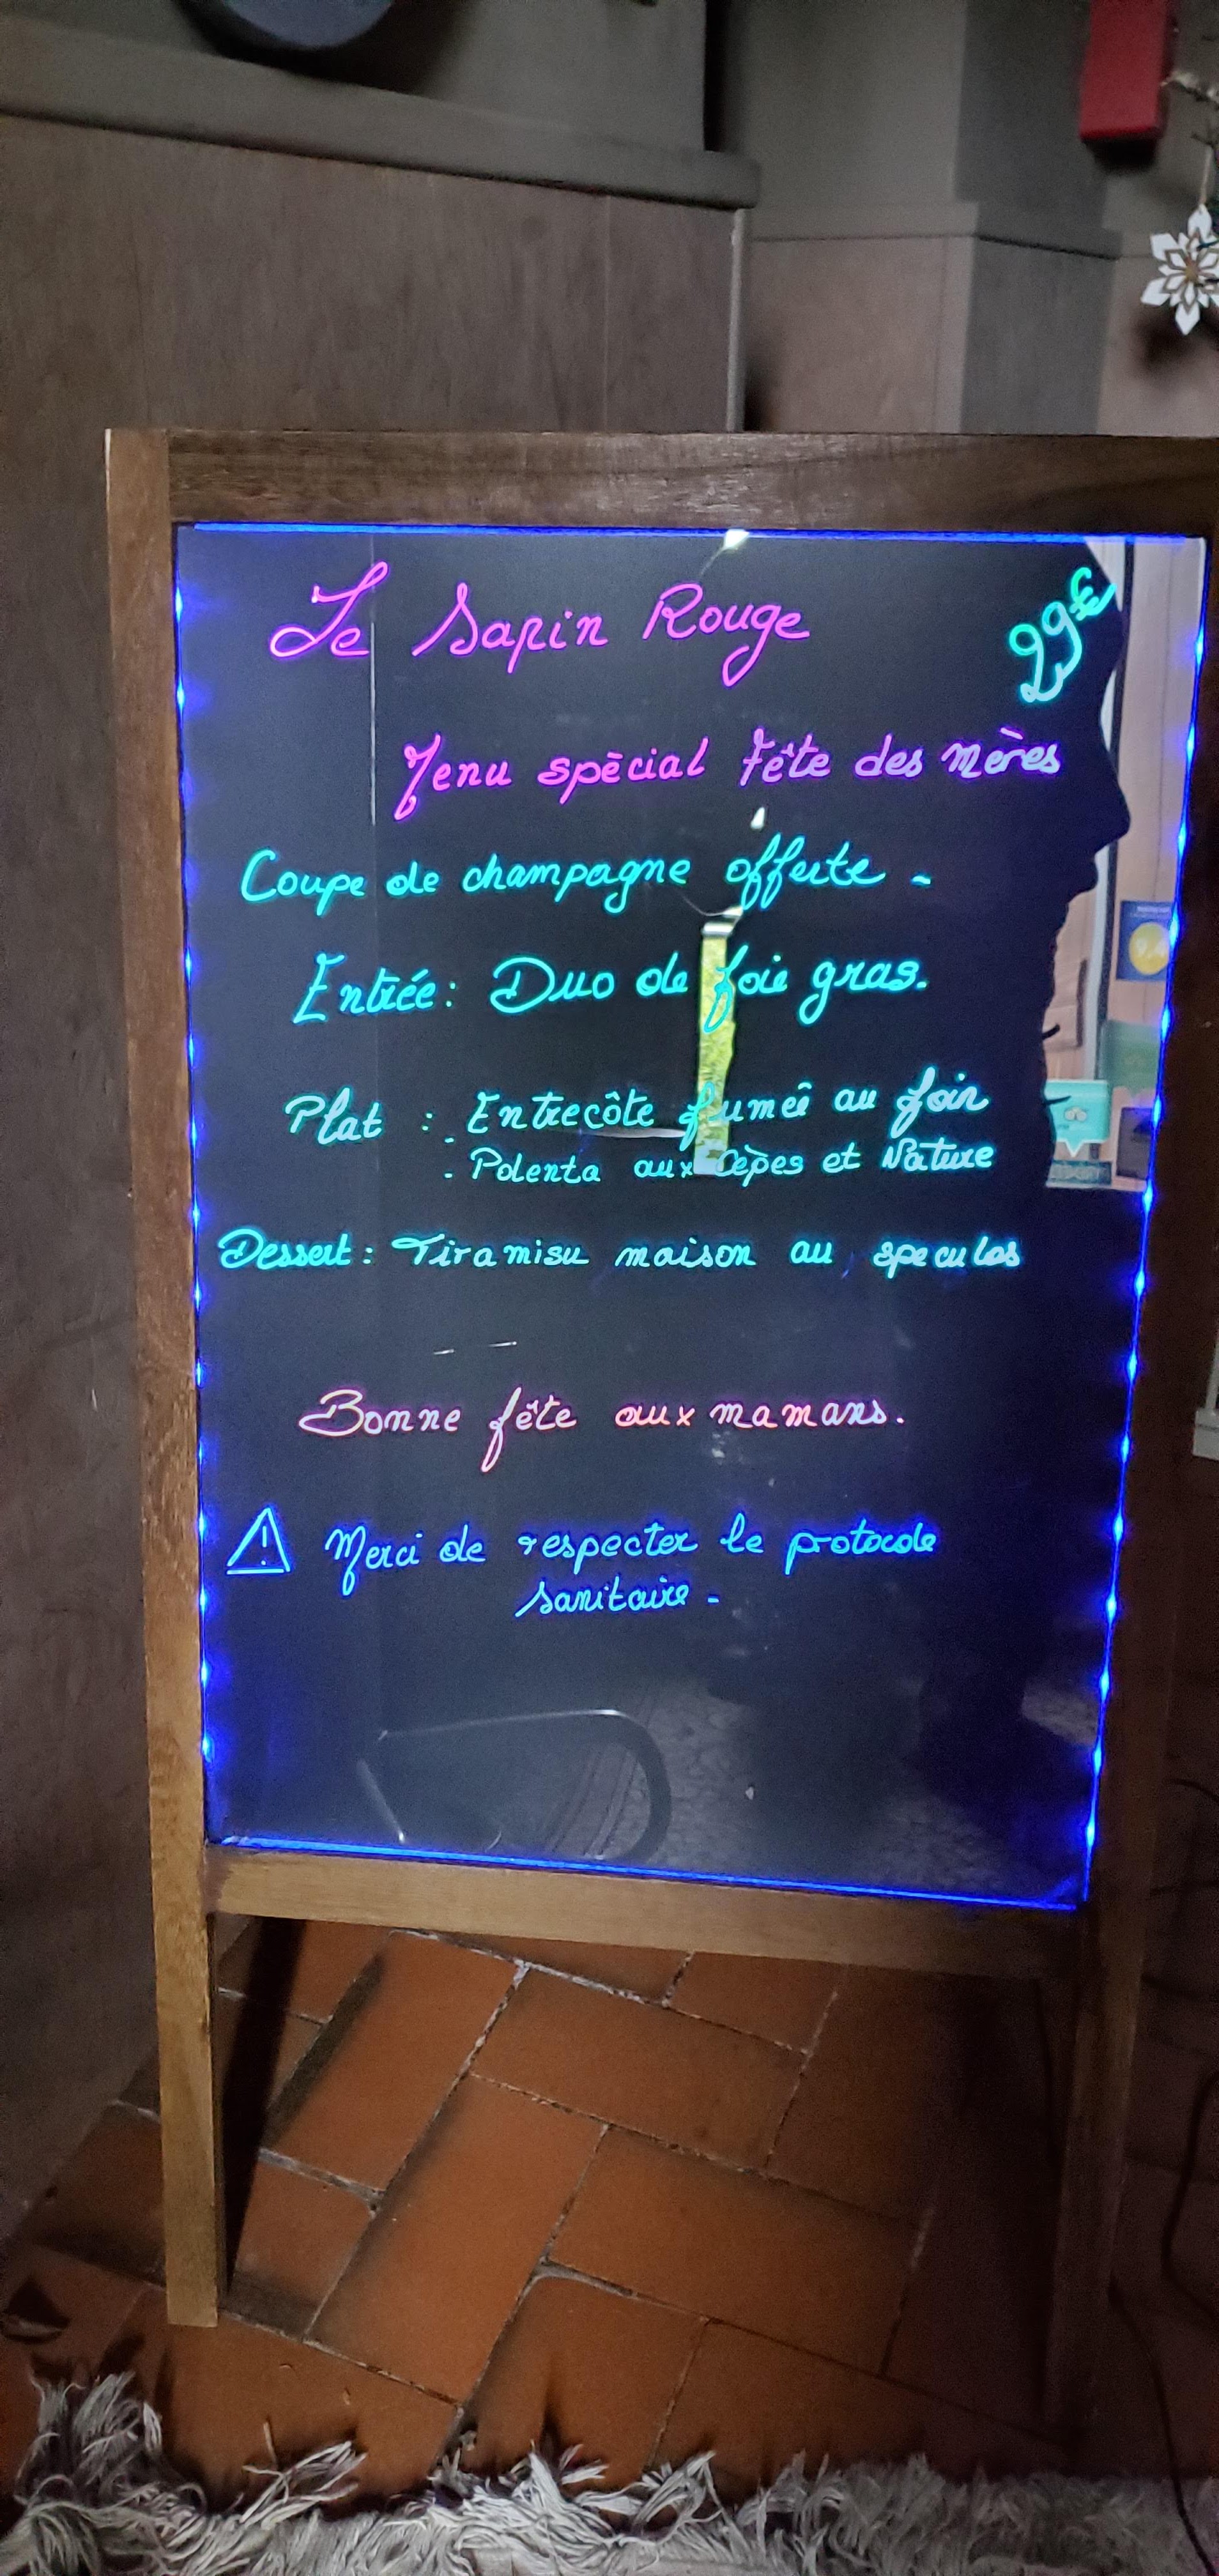 Le Sapin Rouge
29€
Menu spécial Fête des Mères
Coupe de champagne offerte -
Entrée : Duo de foie gras.
Plat : - Entrecôte fumeê au foin
- Polenta aux Cèpes et Nature
Dessert : Tiramisu maison au speculos
Bonne fête aux mamans.
⚠ Merci de respecter le protocole
sanitaire -
9,4